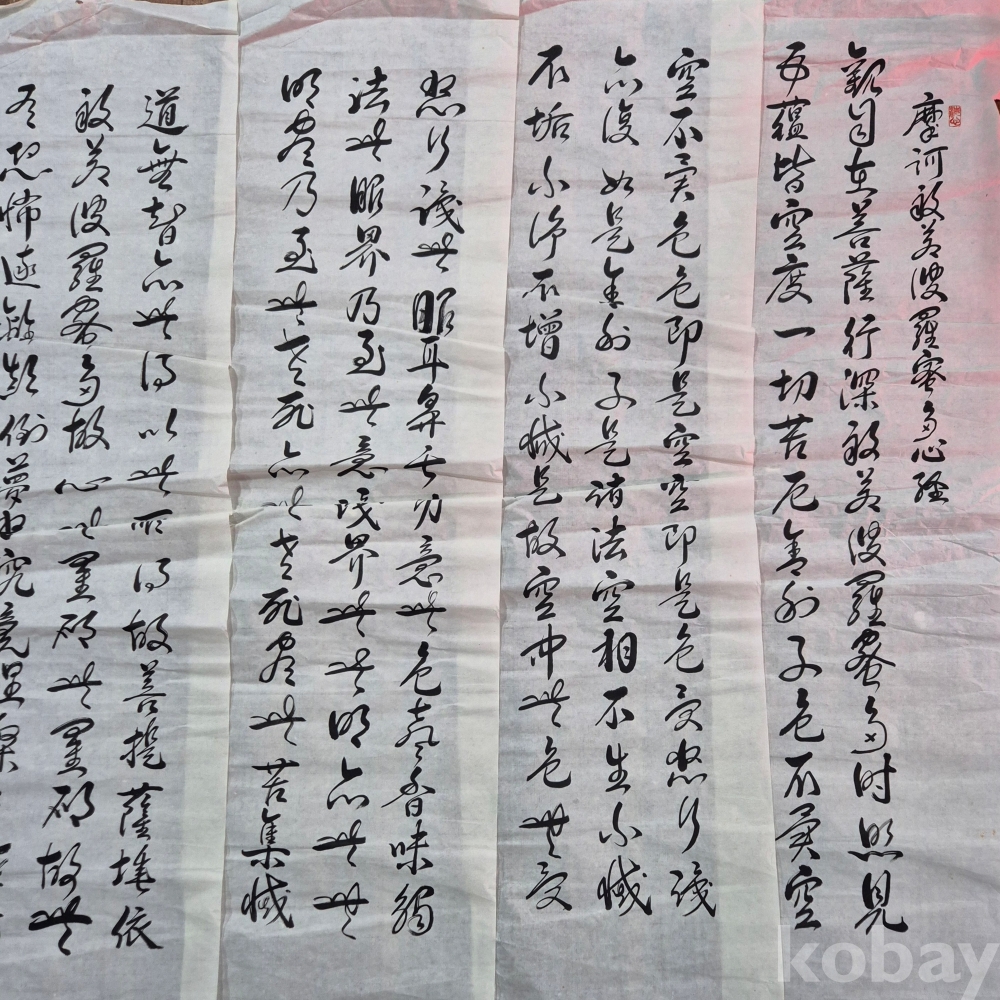 摩訶般若波羅蜜多心經
觀自在菩薩行深般若波羅蜜多时照見
五蘊皆空度一切苦厄舍利子色不異空
空不異色色即是空空即是色受想行識
亦復如是舍利子是諸法空相不生不滅
不垢不淨不增不減是故空中無色無受
想行識無眼耳鼻舌身意無色聲香味觸
法無眼界乃至無意識界無無明亦無無
明盡乃至無老死亦無老死盡無苦集滅
道無智亦無得以無所得故菩提薩埵依
般若波羅蜜多故心無罣礙無罣礙故無
有恐怖遠離顛倒夢想究竟涅槃
kobay